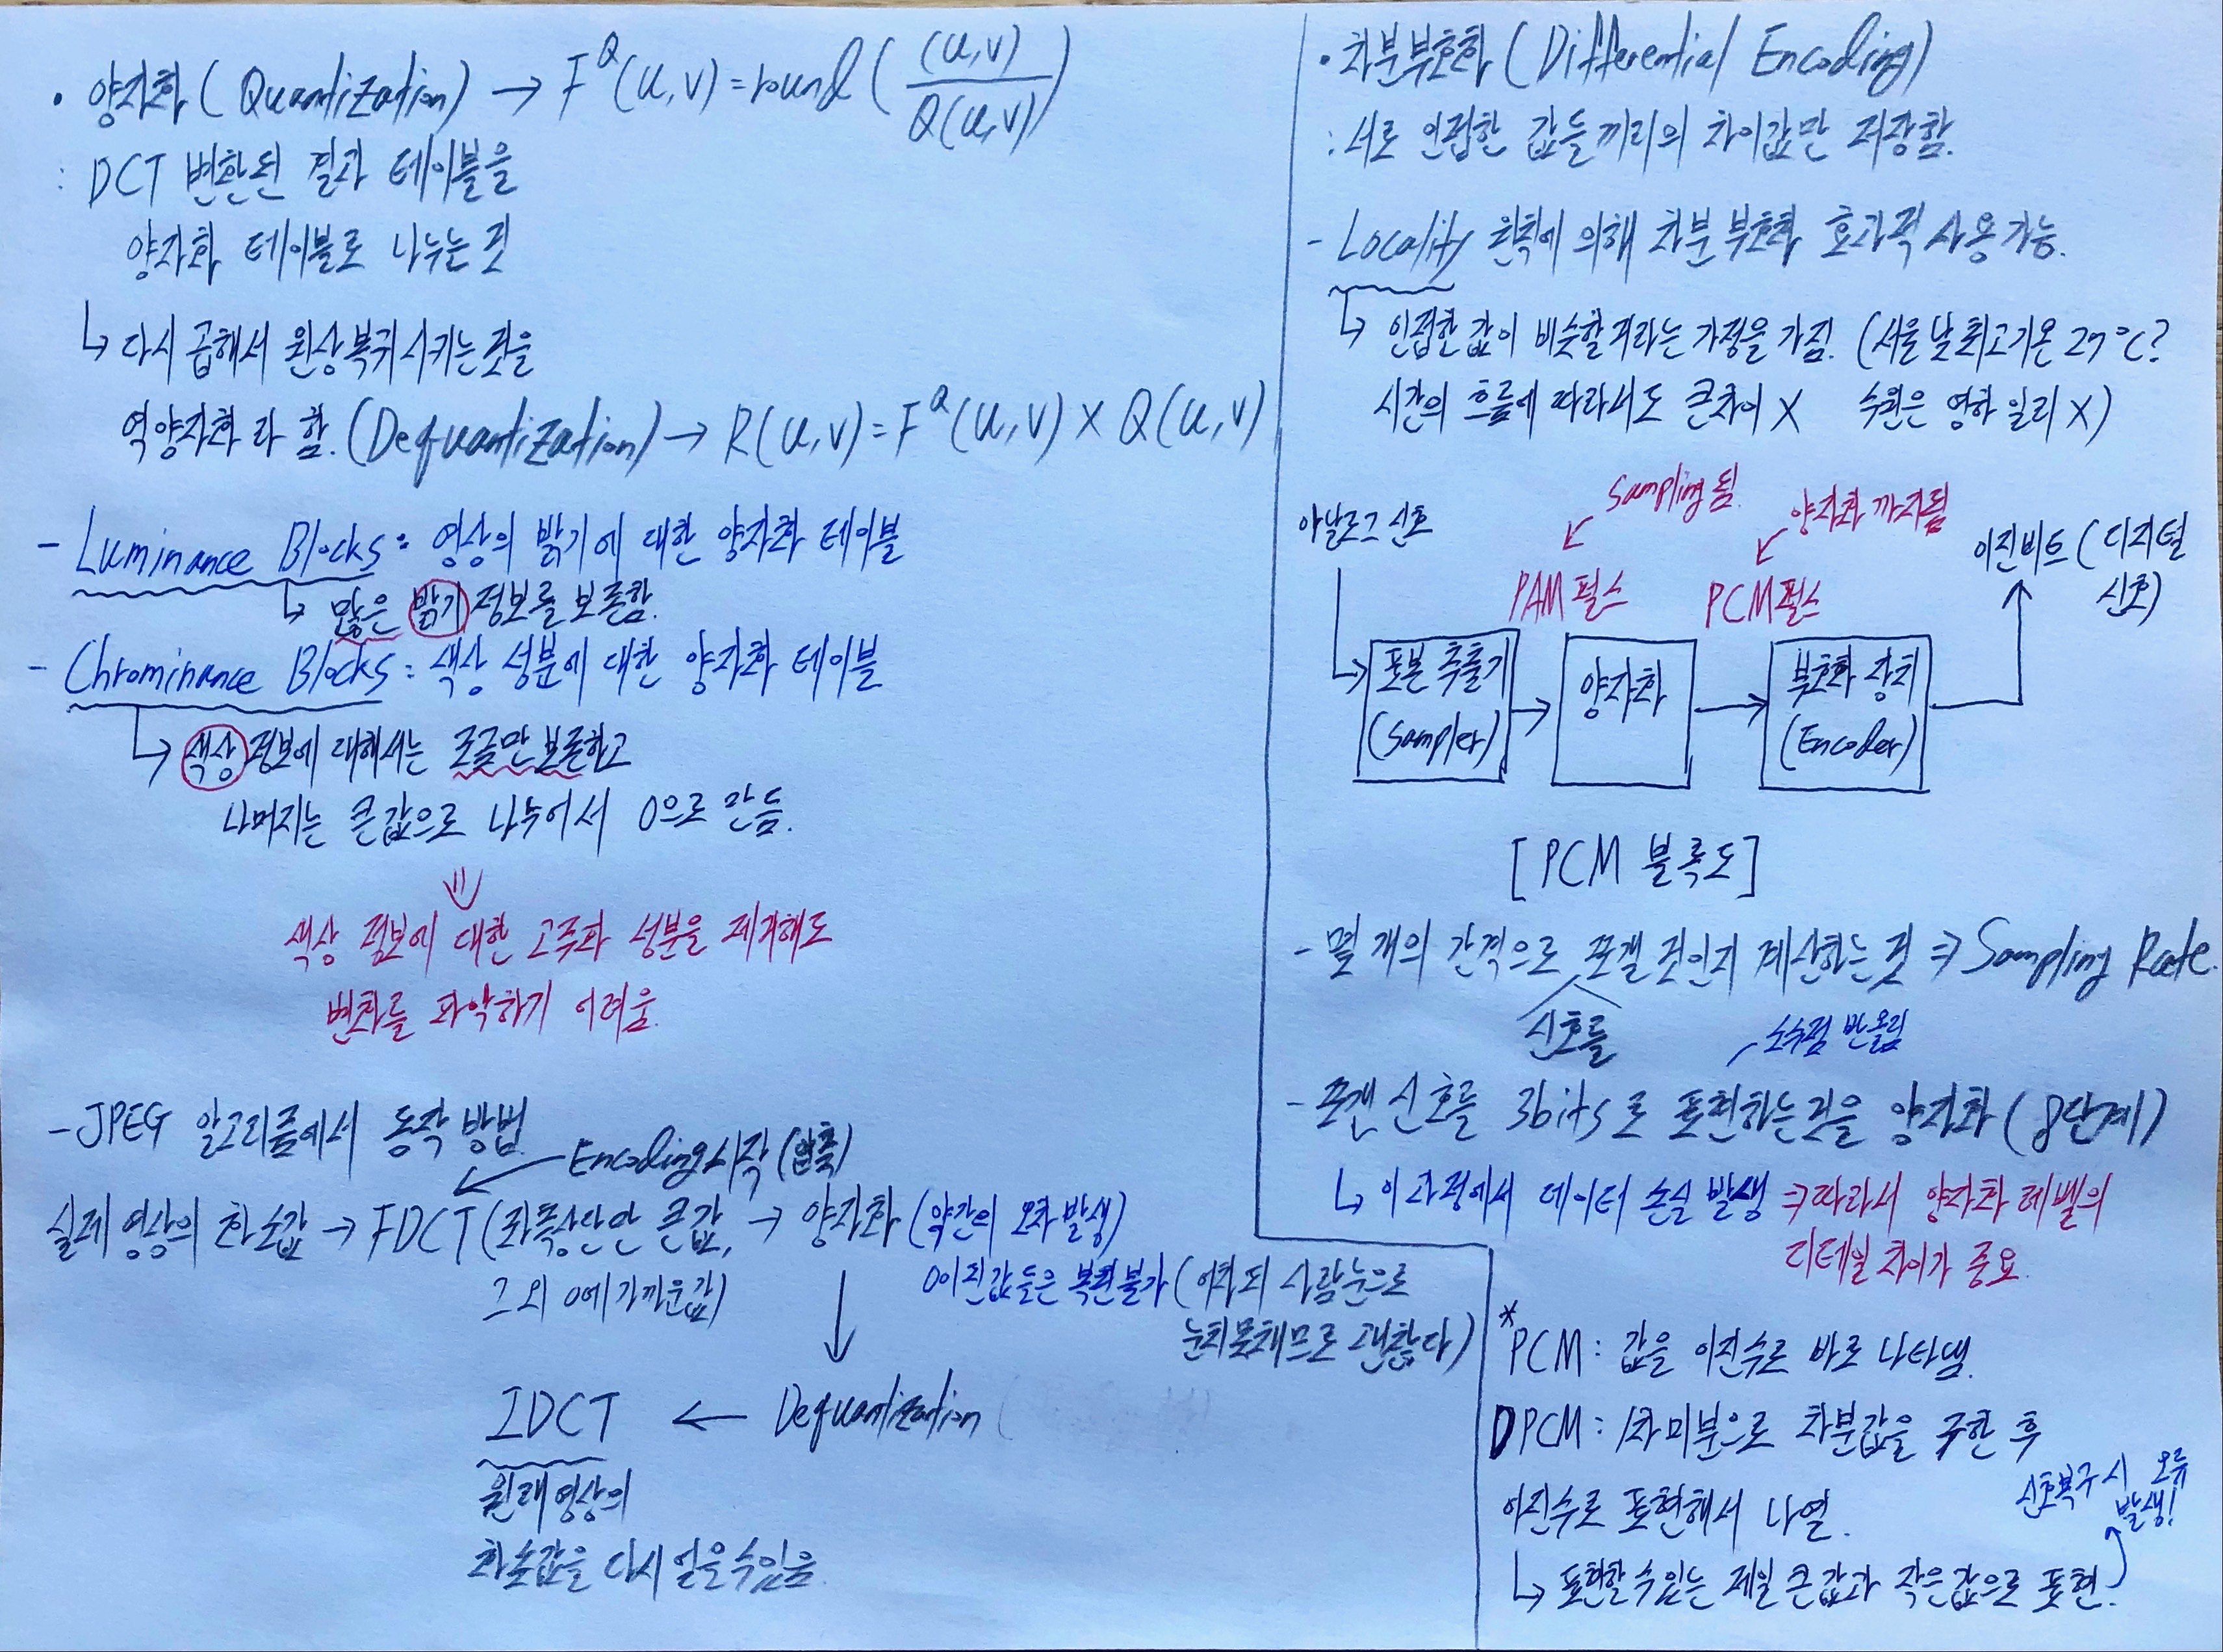 • 양자화(Quantization) → F^Q(u,v)=round((u,v)/Q(u,v))
: DCT 변환된 결과 테이블을
양자화 테이블로 나누는 것
↳ 다시 곱해서 원상복귀시키는 것을
역양자화라 함.(Dequantization) → R(u,v)=F^Q(u,v)×Q(u,v)
- Luminance Blocks: 영상의 밝기에 대한 양자화 테이블
↳ 많은 밝기 정보를 보존함.
- Chrominance Blocks: 색상 성분에 대한 양자화 테이블
↳ 색상 정보에 대해서는 조금만 보존하고
나머지는 큰 값으로 나누어서 0으로 만듬.
⇓
색상 정보에 대한 고주파 성분을 제거해도
변화를 파악하기 어려움.
- JPEG 알고리즘에서 동작 방법
Encoding시작(압축)
실제 영상의 화소값 → FDCT(좌측상단만 큰값, → 양자화 (약간의 오차 발생)
그 외 0에 가까운값)
0이 된값들은 복원불가 (어차피 사람눈으로
눈치못채므로 괜찮다)
IDCT ← Dequantization (
원래영상의
화소값을 다시 얻을수있음
• 차분부호화(Differential Encoding)
: 서로 인접한 값들끼리의 차이값만 저장함.
- Locality 원칙에 의해 차분 부호화 효과적 사용가능.
↳ 인접한 값이 비슷할거라는 가정을 가짐. (서울 낮 최고기온 27℃?
시간의 흐름에 따라서도 큰차이 X 수원은 영하 일리 X)
Sampling 됨.
양자화 까지됨
아날로그 신호
이진비트(디지털
신호)
PAM 펄스
PCM 펄스
표본 추출기
(Sampler)
양자화
부호화 장치
(Encoder)
[PCM 블록도]
- 몇 개의 간격으로 쪼갤 것인지 계산하는 것 ⇒ Sampling Rate.
신호를
소수점 반올림
- 쪼갠 신호를 3bits로 표현하는것을 양자화(8단계)
↳ 이 과정에서 데이터 손실 발생 ⇒ 따라서 양자화 레벨의
디테일 차이가 중요.
* PCM: 값을 이진수로 바로 나타냄.
DPCM: 1차 미분으로 차분값을 구한 후
이진수로 표현해서 나열.
신호복구 시 오류
발생!
↳ 표현할 수 있는 제일 큰 값과 작은 값으로 표현.